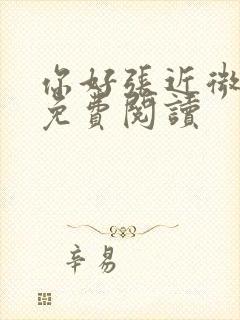 你好張近微
免費閱讀
辛易